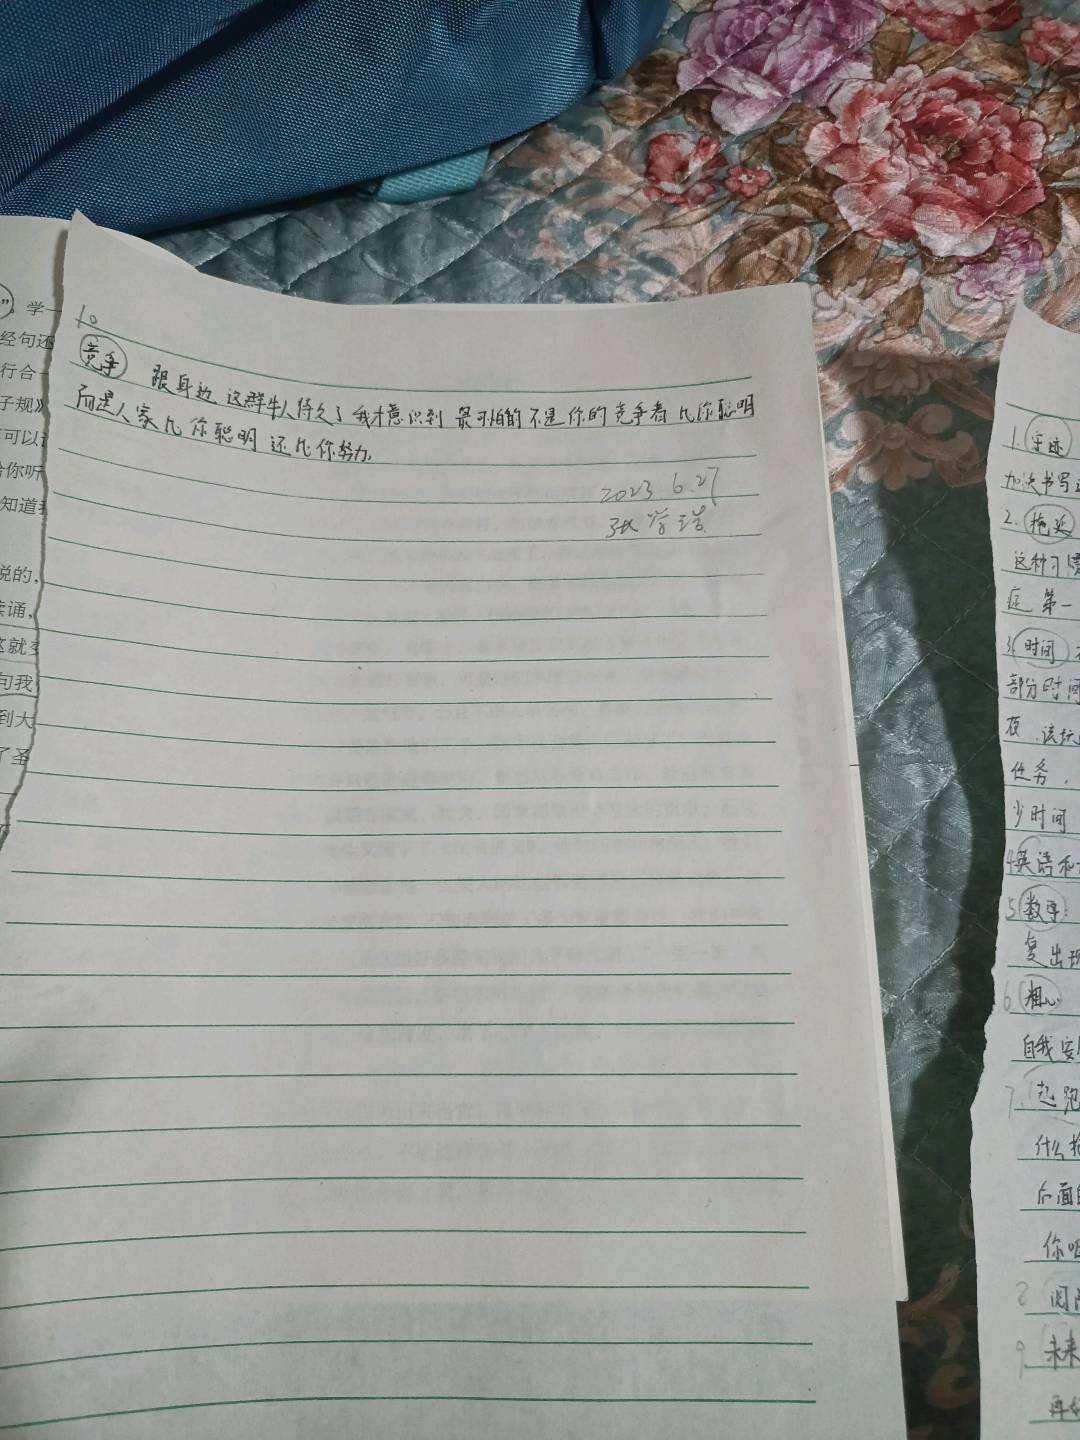 ”，学一
经句还
行合一
子规》
可以
给你听
知道
说的，
读诵，
这就
句我
到大
了圣
10
竞争 跟身边 这群牛人待久了 我才意识到 最可怕的 不是你的 竞争者 比你聪明
而是人家比你聪明 还比你努力。
2023.6.27
张学浩
1.字迹
加快书写
2.拖延
这种习惯
症 第一
3.时间
部分时间
夜，该玩
任务，
少时间
4英语和
5数学：
复出现
6粗心
自我安
7.起跑
什么
后面的
你
8
9 未来
再